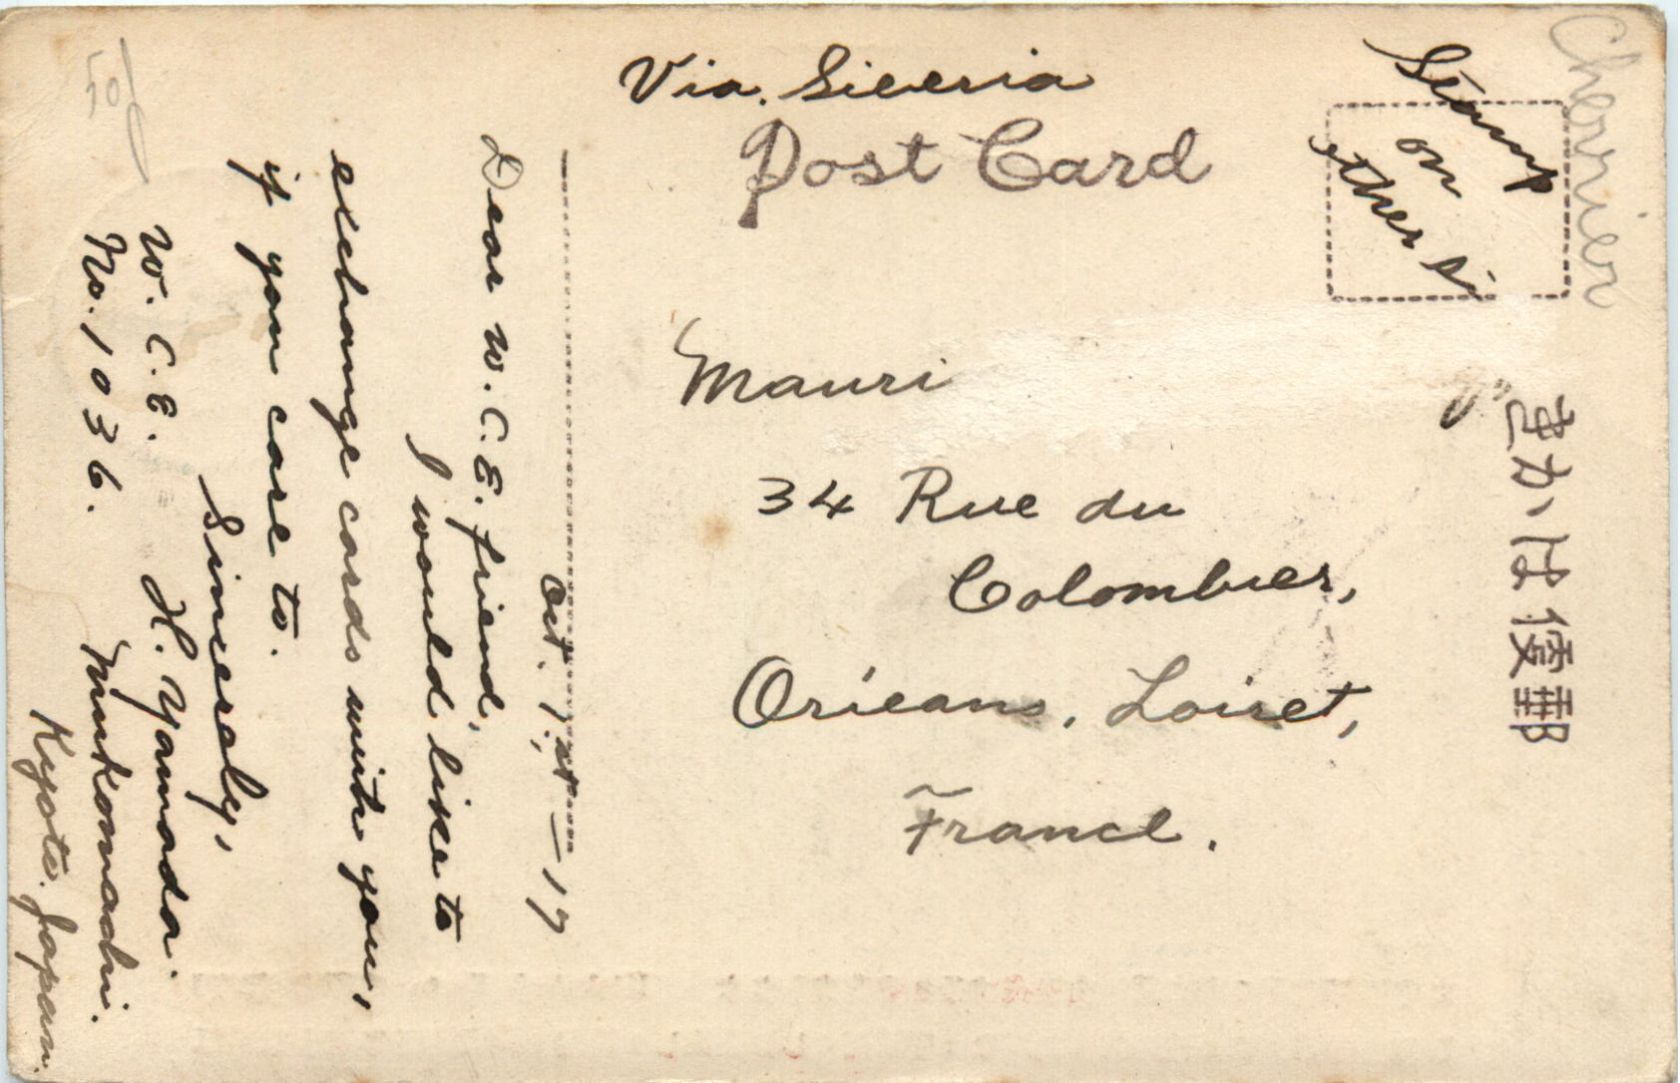 Via. Siberia
Post Card
Stamp
on
other si
Chevrier
きかは便郵
Mauri
34 Rue du
Colombier,
Orleans, Loiret,
France.
Oct. 1, st — 19
Dear W.C.E. friend,
I would like to
exchange cards with you,
if you care to.
Sincerely,
W.C.E. H. Yamada.
No. 1036. Minkomachi.
Kyoto. Japan.